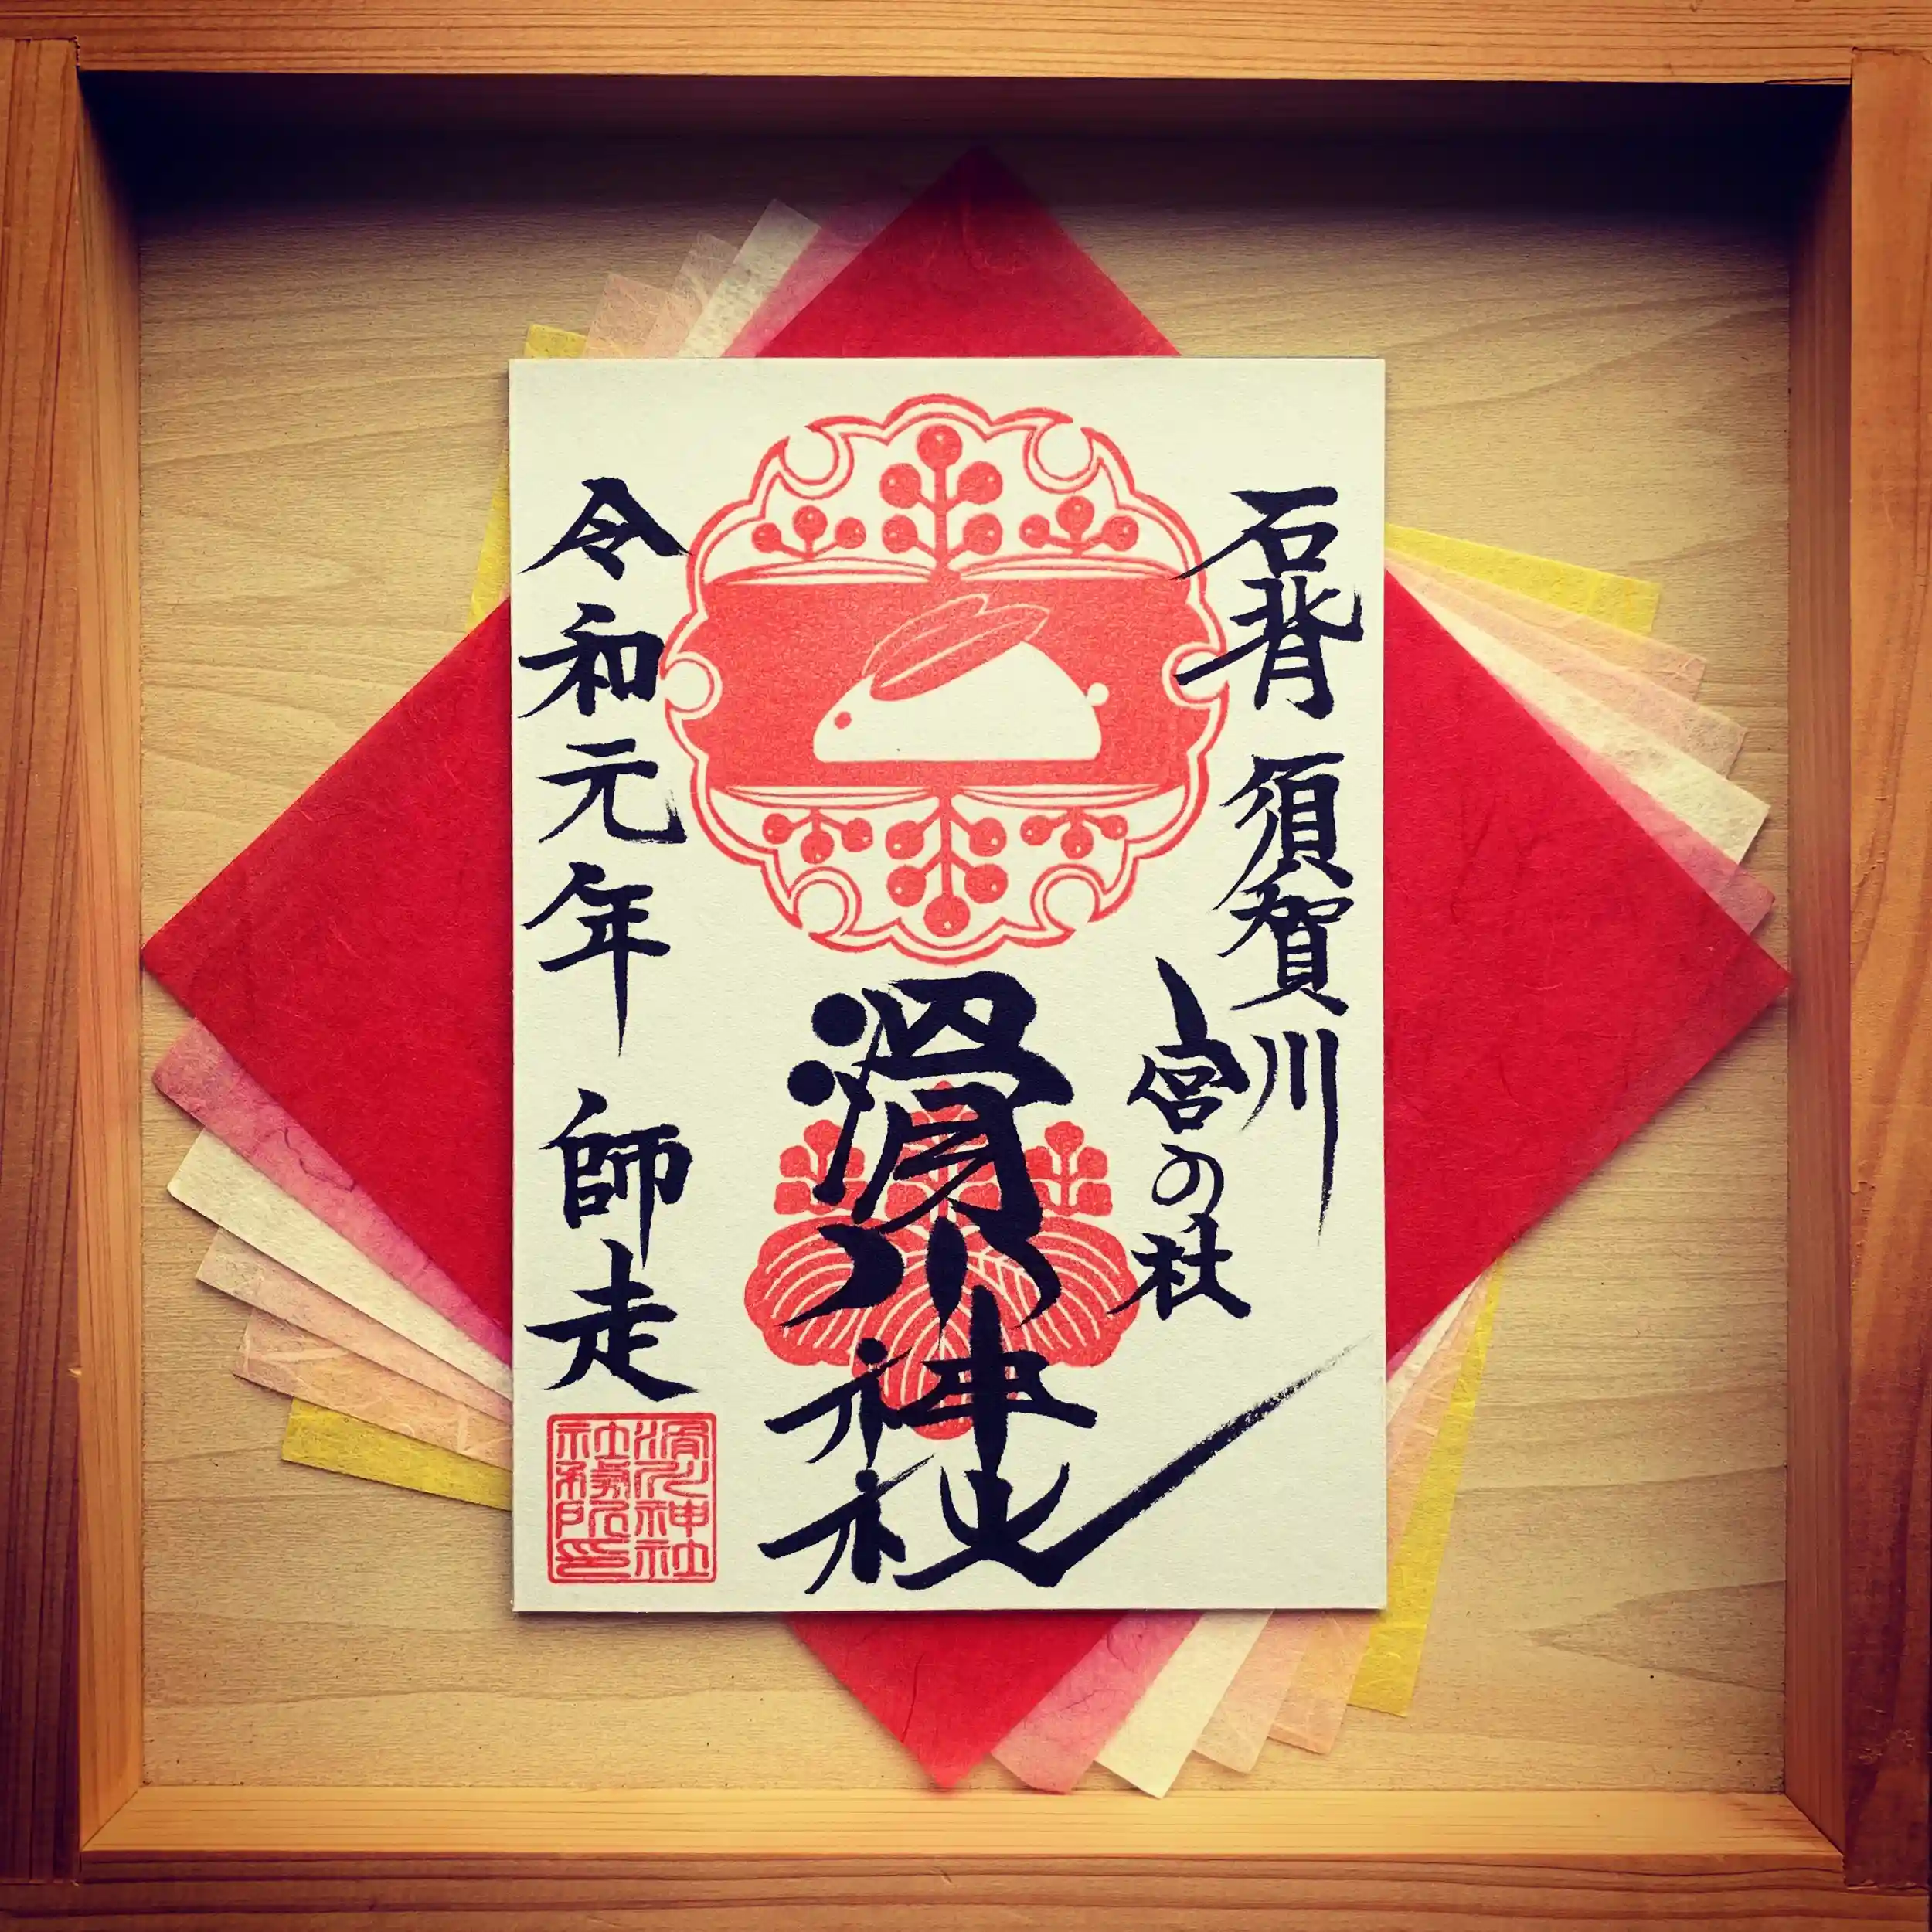 石背 須賀川
宮の杜
滑川神社
令和元年 師走
滑川神社
社務所印